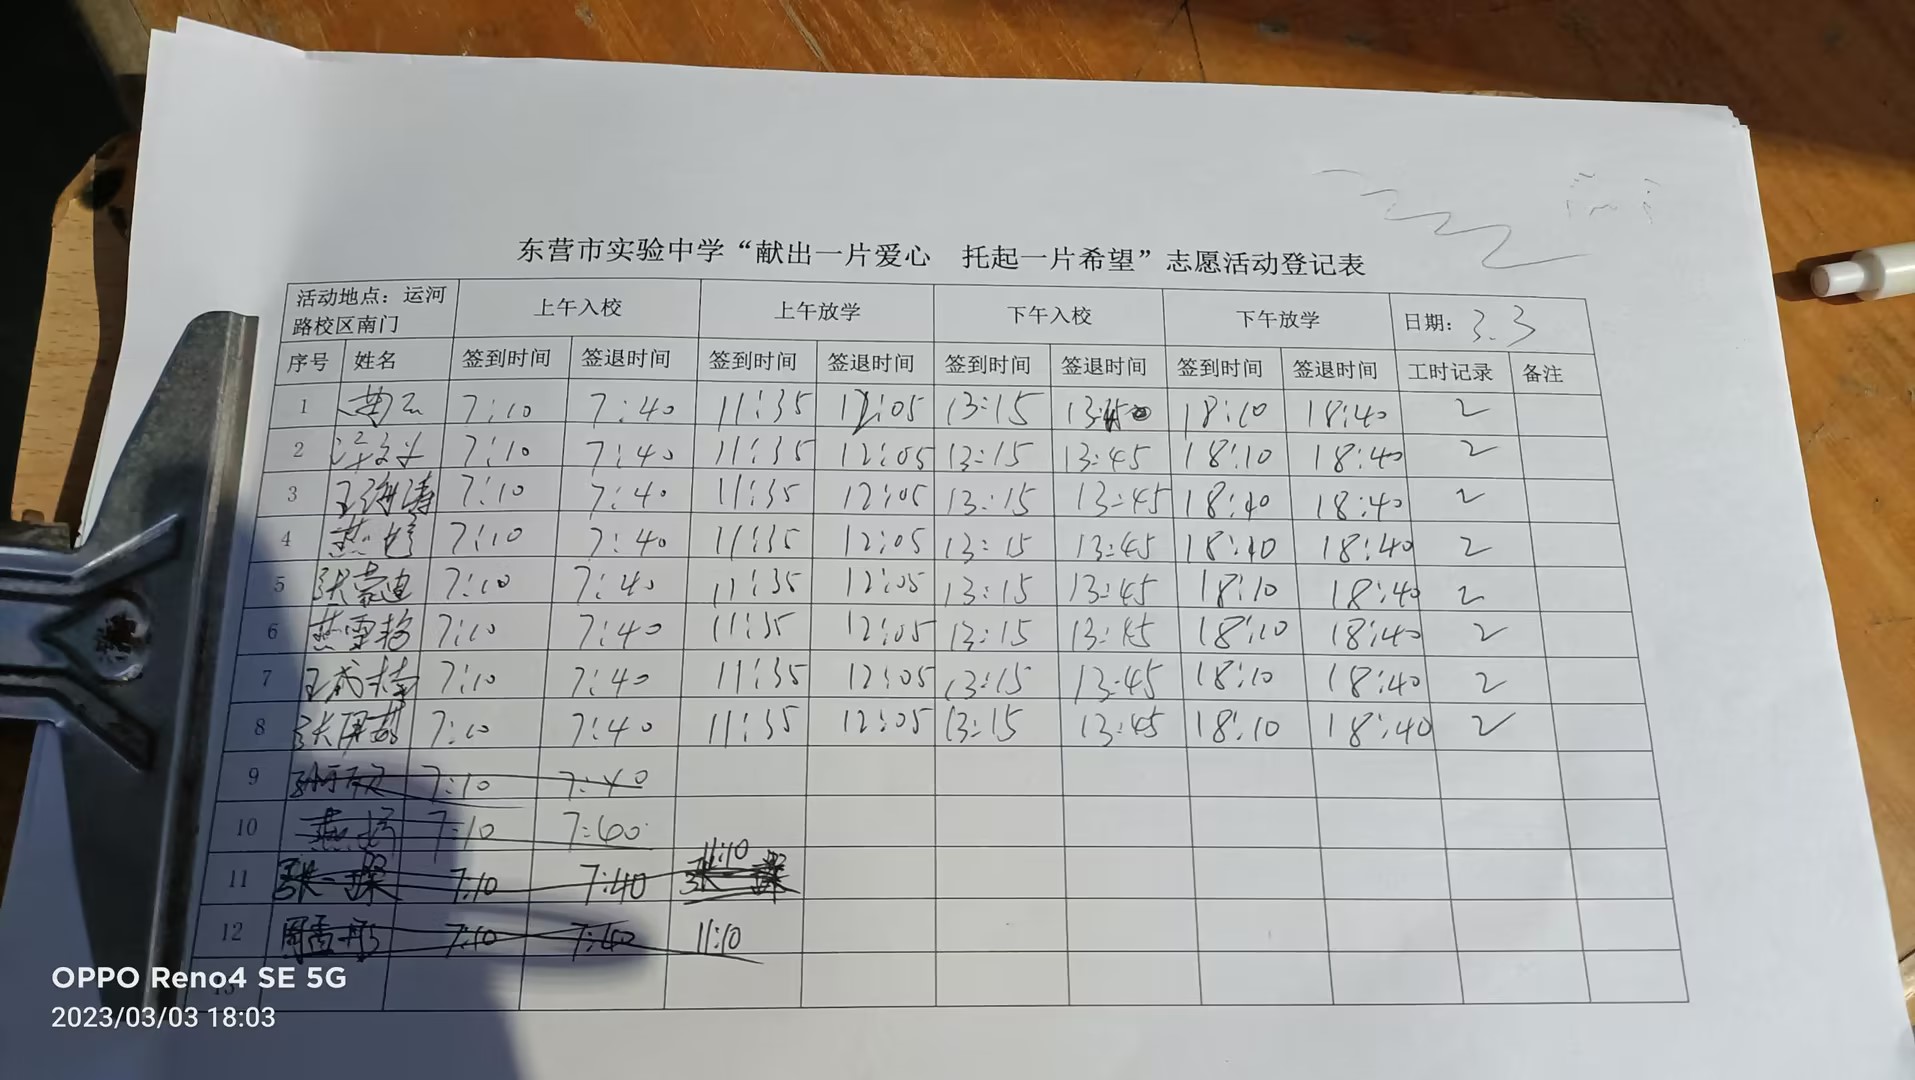 东营市实验中学“献出一片爱心 托起一片希望”志愿活动登记表
活动地点：运河路校区南门 上午入校 上午放学 下午入校 下午放学 日期：3.3
序号 姓名 签到时间 签退时间 签到时间 签退时间 签到时间 签退时间 签到时间 签退时间 工时记录 备注
1 7:10 7:40 11:35 12:05 13:15 18:10 18:40 2
2 7:10 7:40 11:35 12:05 13:15 13:45 18:10 18:40 2
3 王海涛 7:10 7:40 11:35 12:05 13:15 13:45 18:10 18:40 2
4 7:10 7:40 11:35 12:05 13:15 13:45 18:10 18:40 2
5 7:10 7:40 11:35 12:05 13:15 13:45 18:10 18:40 2
6 7:10 7:40 11:35 12:05 13:15 13:45 18:10 18:40 2
7 7:10 7:40 11:35 12:05 13:15 13:45 18:10 18:40 2
8 7:10 7:40 11:35 12:05 13:15 13:45 18:10 18:40 2
9 7:10 7:40
10 7:10
11 7:10 7:40 11:10
12 7:10 7:40 11:10
13
OPPO Reno4 SE 5G
2023/03/03 18:03